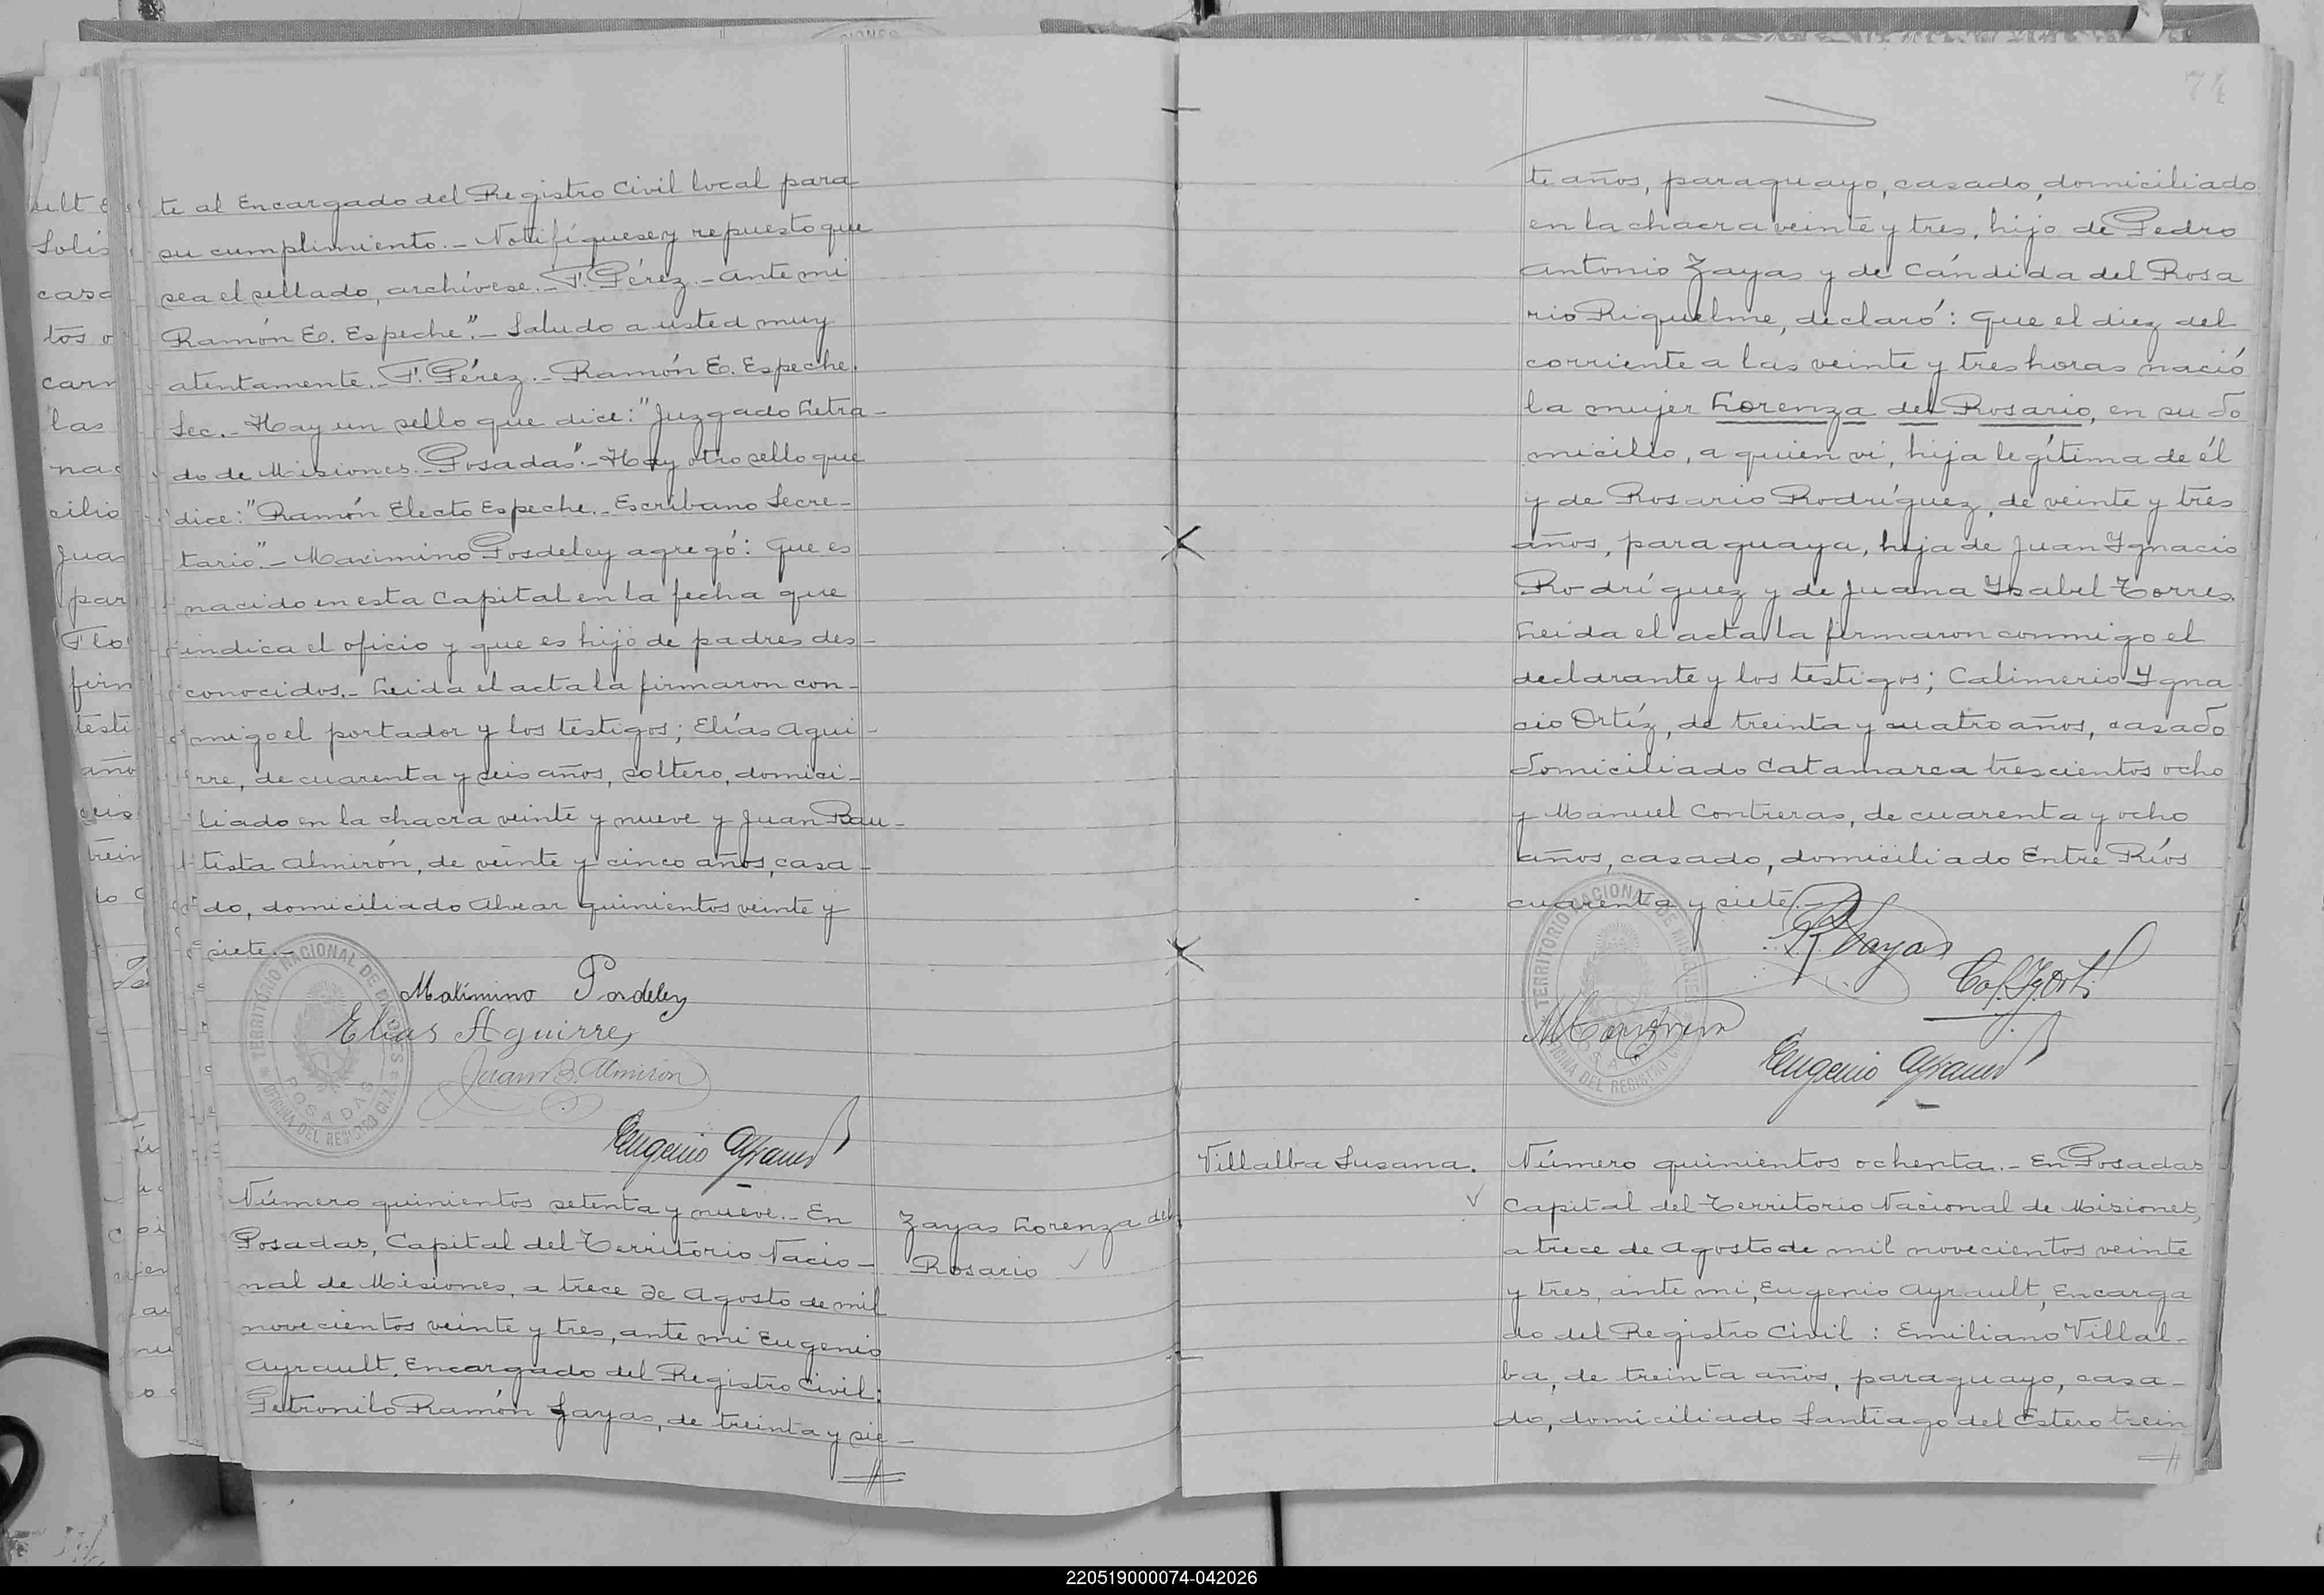 te al Encargado del Registro Civil local para
su cumplimiento.- Notifíquese y repuesto que
sea el sellado, archívese.- F. Pérez.- ante mi
Ramón E. Espeche".- Saludo a usted muy
atentamente.- F. Pérez.- Ramón E. Espeche.
Sec.- Hay un sello que dice: "Juzgado Letra-
do de Misiones.- Posadas".- Hay otro sello que
dice: "Ramón Electo Espeche.- Escribano Secre-
tario".- Maximino Posdeley agregó: Que es
nacido en esta Capital en la fecha que
indica el oficio y que es hijo de padres des-
conocidos.- Leida el acta la firmaron con-
migo el portador y los testigos; Elías Agui-
rre, de cuarenta y seis años, soltero, domici-
liado en la chacra veinte y nueve y Juan Bau-
tista Almirón, de veinte y cinco años, casa-
do, domiciliado Alvear quinientos veinte y
siete.-
TERRITORIO NACIONAL DE MISIONES
POSADAS
OFICINA DEL REGISTRO CIVIL
Maximino Posdeley
Elias Aguirre
Juan B. Almiron
Eugenio Ayrault
Número quinientos setenta y nueve.- En
Posadas, Capital del Territorio Nacio-
nal de Misiones, a trece de Agosto de mil
novecientos veinte y tres, ante mi Eugenio
Ayrault, Encargado del Registro Civil:
Petronilo Ramón Zayas, de treinta y sie-
Zayas Lorenza del
Rosario
74
te años, paraguayo, casado, domiciliado
en la chacra veinte y tres, hijo de Pedro
Antonio Zayas y de Cándida del Rosa
rio Riquelme, declaró: Que el diez del
corriente a las veinte y tres horas nació
la mujer Lorenza del Rosario, en su do
micilio, a quien vi, hija legítima de él
y de Rosario Rodríguez, de veinte y tres
años, paraguaya, hija de Juan Ygnacio
Rodríguez y de Juana Ysabel Torres.
Leida el acta la firmaron conmigo el
declarante y los testigos; Calimerio Ygna
cio Ortíz, de treinta y cuatro años, casado
domiciliado Catamarca trescientos ocho
y Manuel Contreras, de cuarenta y ocho
años, casado, domiciliado Entre Ríos
cuarenta y siete.-
TERRITORIO NACIONAL DE MISIONES
POSADAS
OFICINA DEL REGISTRO CIVIL
R. Zayas
Cal. Ig. Ortiz
Eugenio Ayrault
Villalba Susana.
Número quinientos ochenta.- En Posadas
Capital del Territorio Nacional de Misiones,
a trece de Agosto de mil novecientos veinte
y tres, ante mi, Eugenio Ayrault, Encarga
do del Registro Civil: Emiliano Villal-
ba, de treinta años, paraguayo, casa-
do, domiciliado Santiago del Estero trein
220519000074-042026